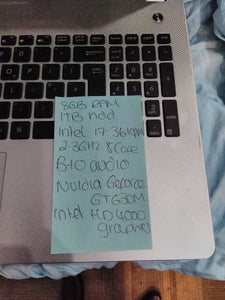 8GB RAM
1TB hdd
Intel i7-3610QM
2.3GHz 8 Core
B+O audio
Nvidia Geforce
GT630M
intel HD 4000
graphics